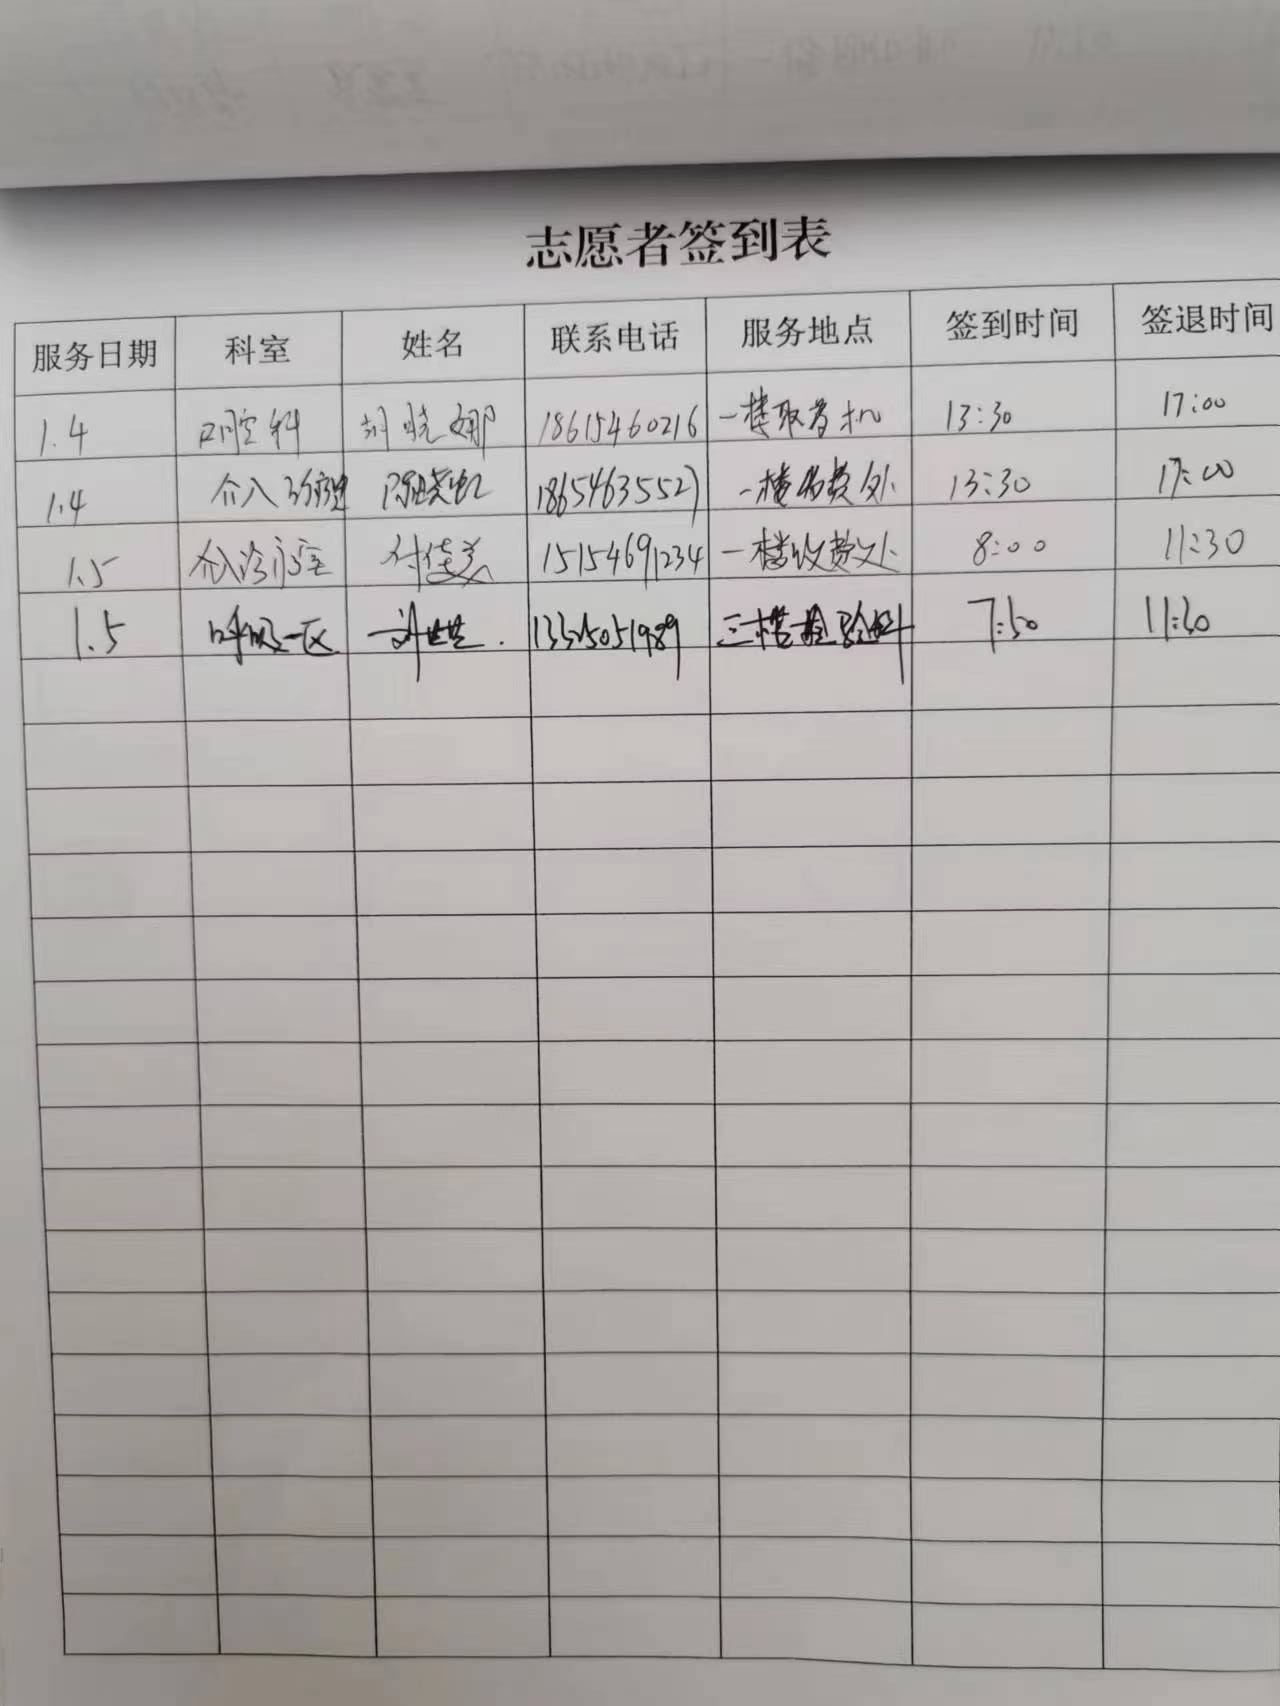 志愿者签到表
服务日期 科室 姓名 联系电话 服务地点 签到时间 签退时间
1.4 口腔科 胡晓娜 18615460216 一楼取片机 13:30 17:00
1.4 介入 陈晓虹 18654635527 一楼收费处 13:30 17:00
1.5 介入治疗室 付佳美 15154691234 一楼收费处 8:00 11:30
1.5 呼吸一区 三楼检验科 7:50 11:30